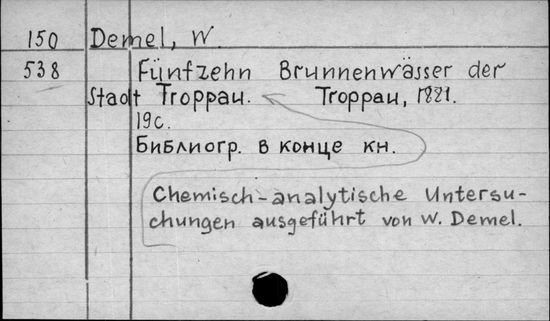 150 Demel, W.
538 Fünfzehn Brunnenwässer der
Stadt Troppau. Troppau, 1881.
19c.
Библиогр. в конце кн.
Chemisch-analytische Untersu-
chungen ausgeführt von W. Demel.